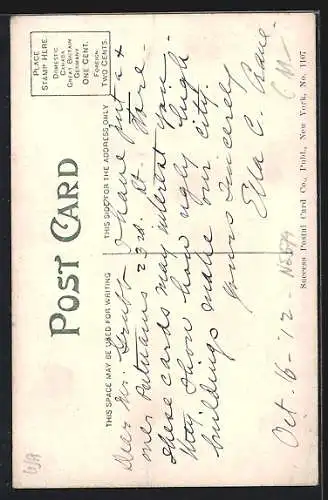 POST CARD
THIS SPACE MAY BE USED FOR WRITING
THIS SIDE FOR THE ADDRESS ONLY
PLACE
STAMP HERE
DOMESTIC
CANADA
GREAT BRITAIN
GERMANY
ONE CENT.
FOREIGN
TWO CENTS.
Dear Mr. Grubb I have put a x
over Putnams 23rd. St. Store.
these cards may interest you.
They show how ugly high
buildings make our city.
Yours Sincerely
Ella C. Crane
Oct. 6 - '12 -
Success Postal Card Co., Publ., New York, No. 1107